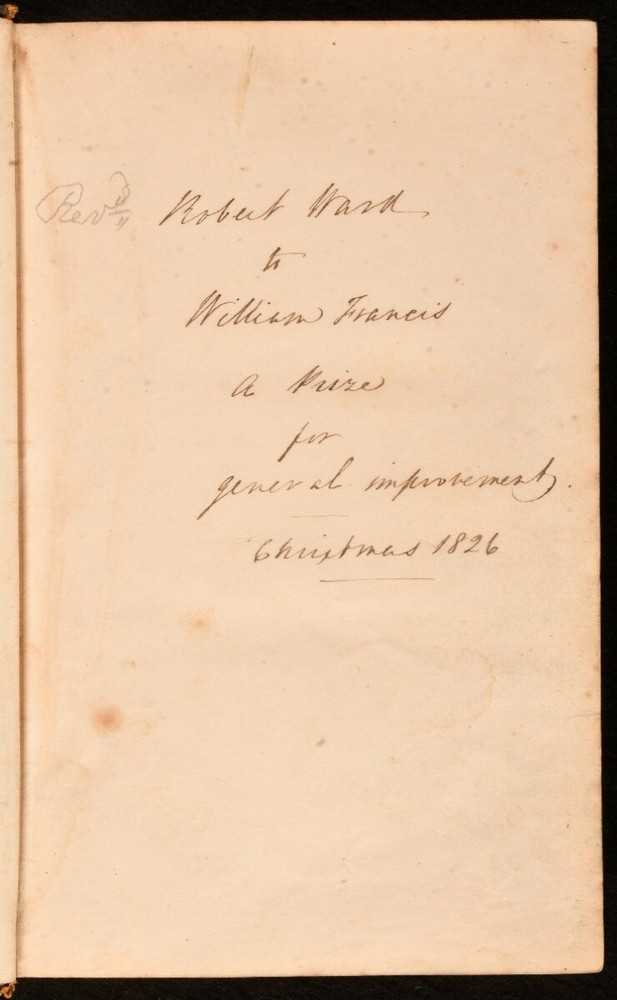 Revd Robert Ward
to
William Francis
A Prize
for
general improvement.
Christmas 1826